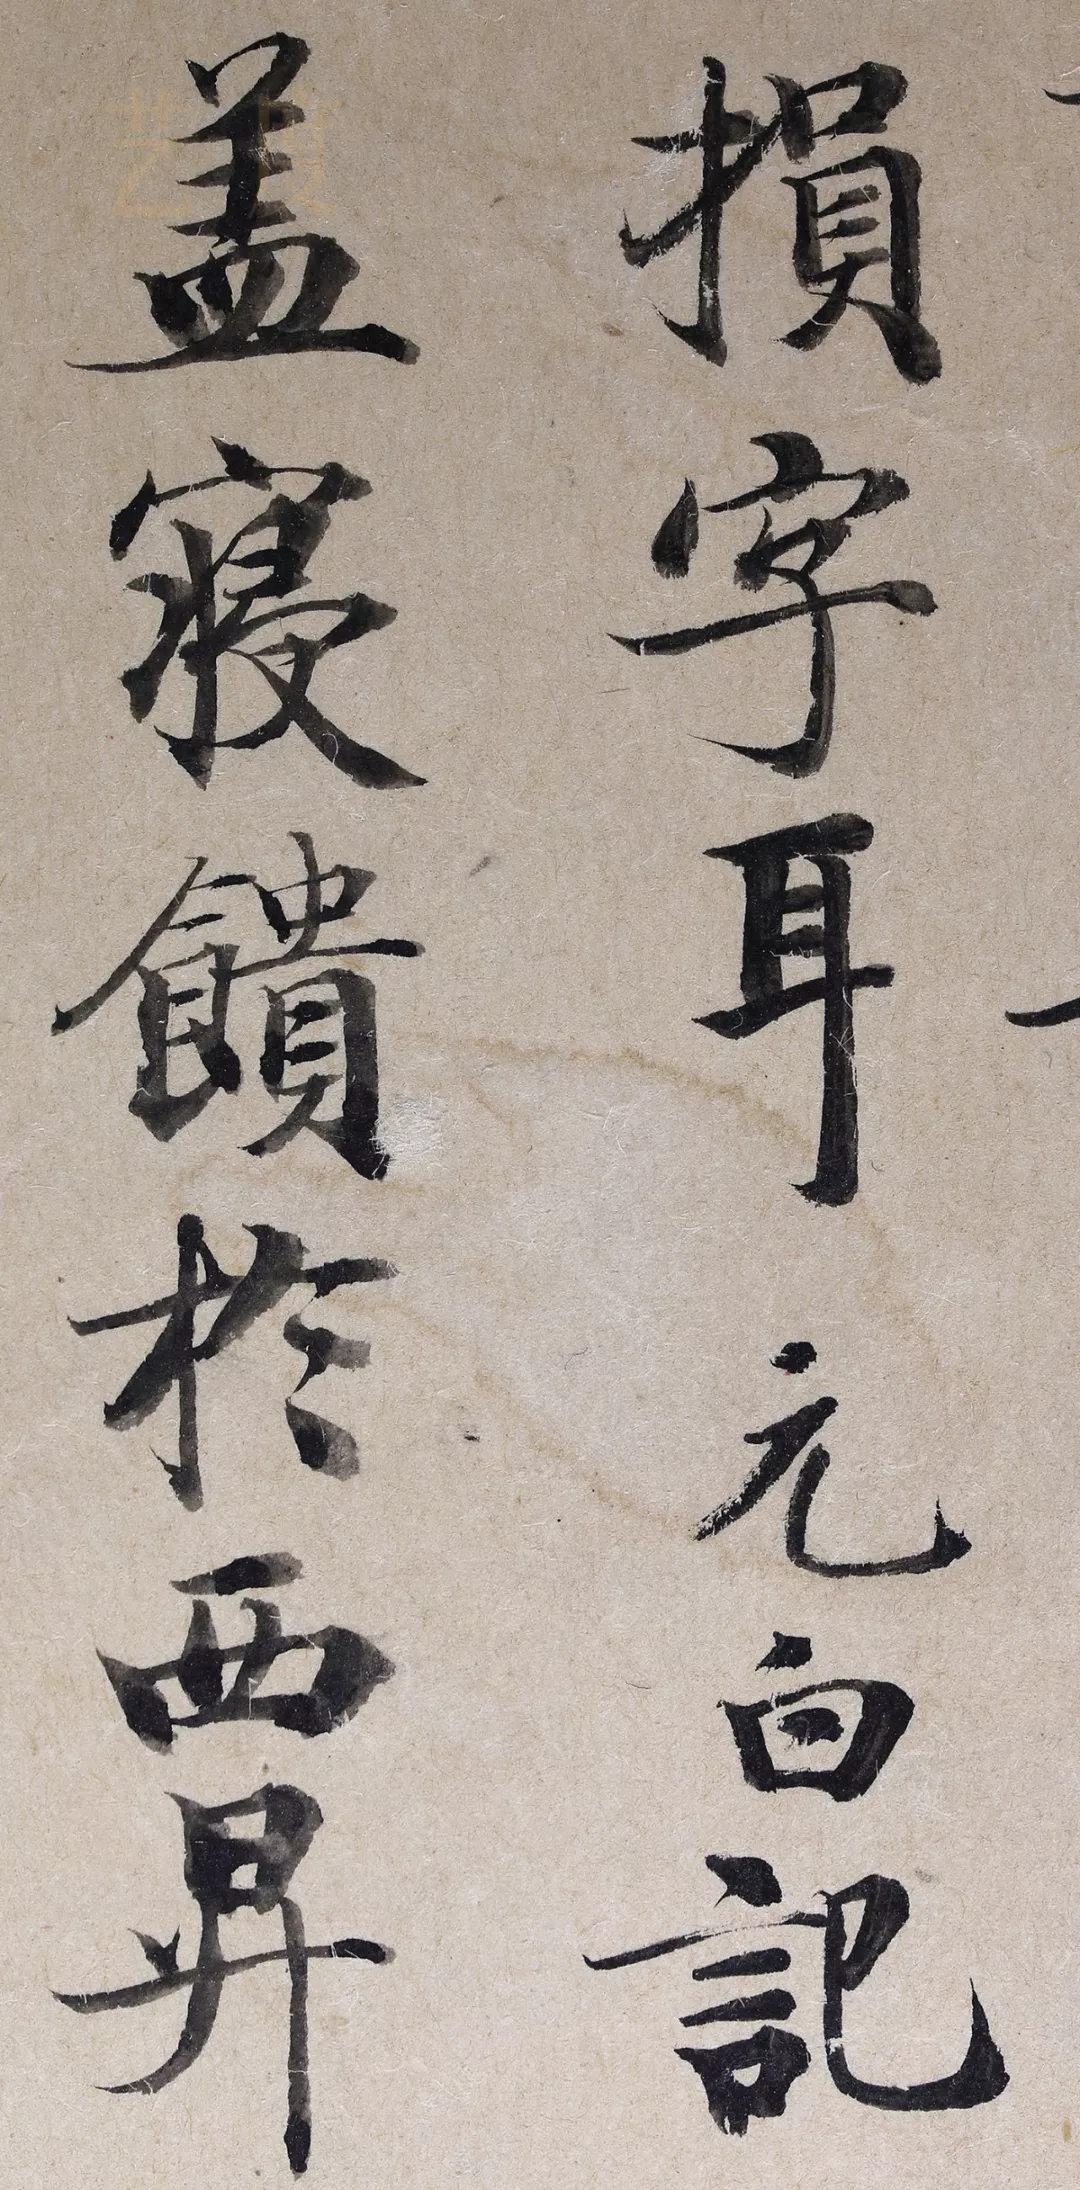 損字耳元白記
盖寝饋於西昇